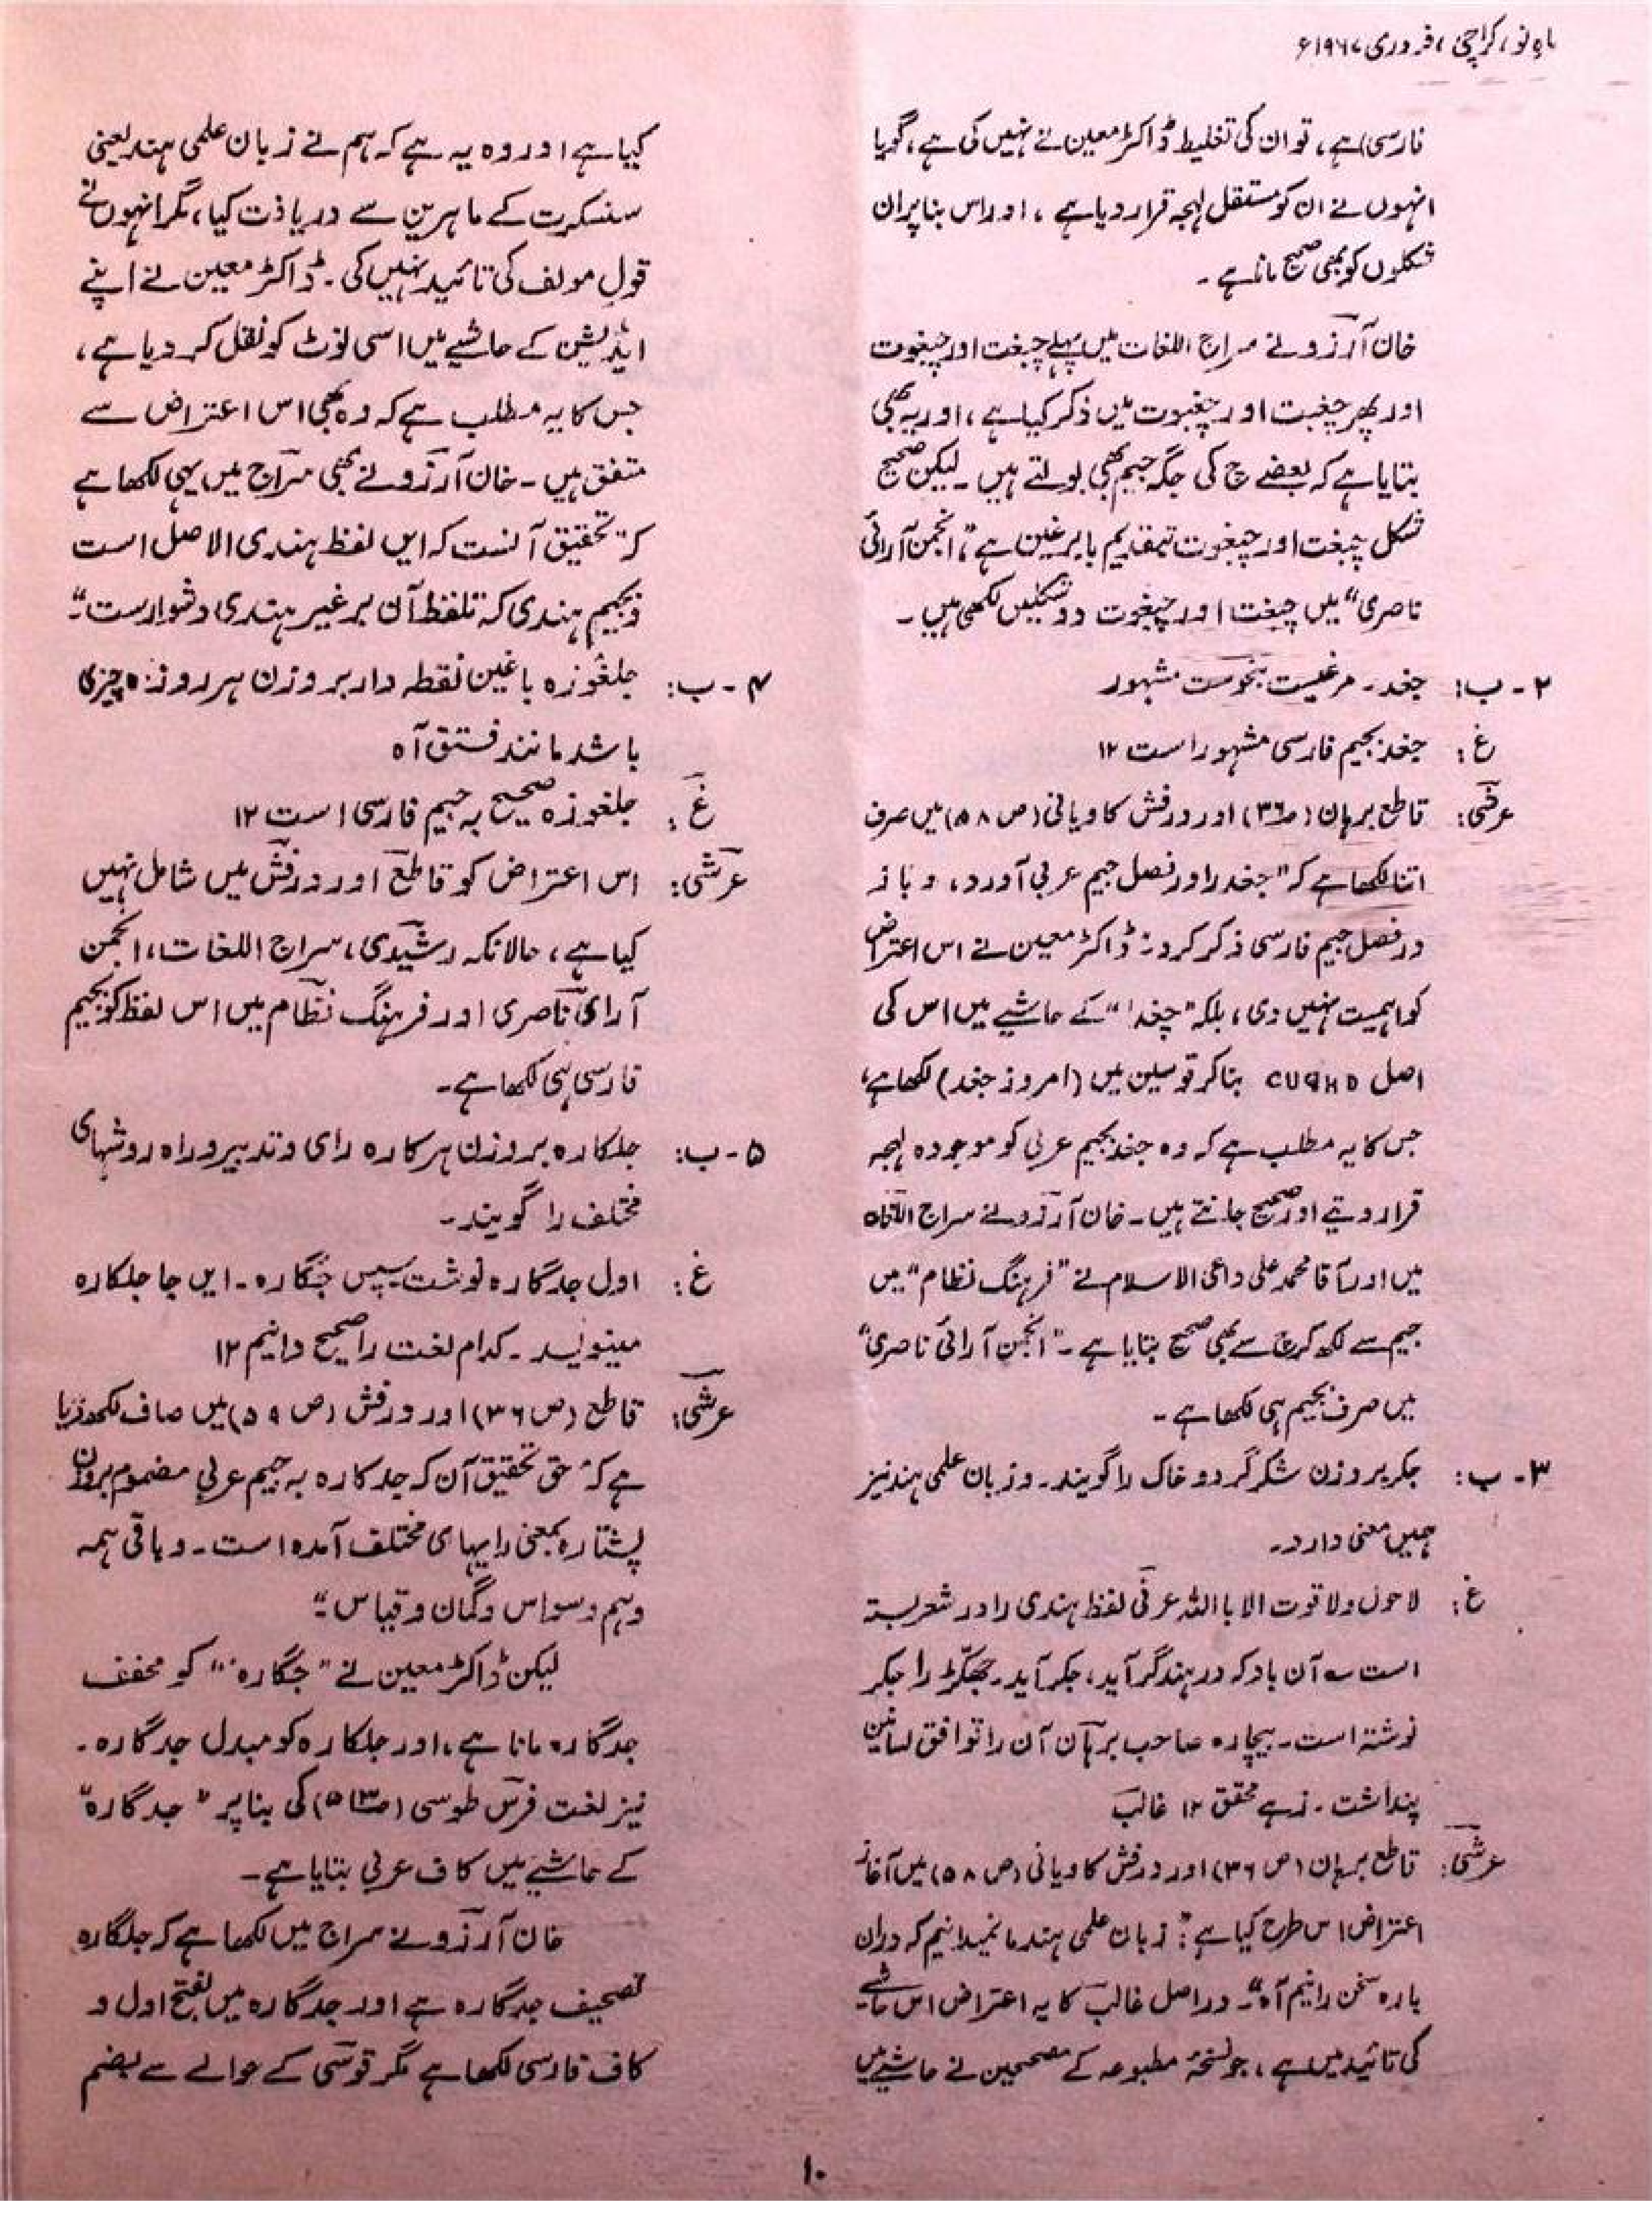 ماہِ نو، کراچی، فروری ۱۹۶۷ء
فارسی) ہے، تو ان کی تغلیط ڈاکٹر معین نے نہیں کی ہے، گویا
انہوں نے ان کو مستقل لہجہ قرار دیا ہے، اور اس بنا پر ان
شکلوں کو بھی صحیح مانا ہے۔
خان آرزو نے سراج اللغات میں پہلے چبغت اور چبغوت
اور پھر چغبت اور چغبوت میں ذکر کیا ہے، اور یہ بھی
بتایا ہے کہ بعضے چ کی جگہ جیم بھی بولتے ہیں۔ لیکن صحیح
شکل چبغت اور چبغوت بتقدیم با بر غین ہے "انجمن آرائی
ناصری" میں چبغت اور چبغوت دو شکلیں لکھی ہیں۔
۲۔ ب: جغد۔ مرغیست بنحوست مشہور
غ: چغد بجیم فارسی مشہور است ۱۲
عرشی: قاطع برہان (ص۳۶) اور درفش کاویانی (ص ۵۸) میں صرف
اتنا لکھا ہے کہ "جغد را در فصل جیم عربی آورد، و باز
در فصل جیم فارسی ذکر کرد" ڈاکٹر معین نے اس اعتراض
کو اہمیت نہیں دی، بلکہ "چغد" کے حاشیے میں اس کی
اصل CUGHD بتا کر قوسین میں (امروز جغد) لکھا ہے،
جس کا یہ مطلب ہے کہ وہ جغد بجیم عربی کو موجودہ لہجہ
قرار دیتے اور صحیح جانتے ہیں۔ خان آرزو نے سراج اللغات
میں اور آقا محمد علی داعی الاسلام نے "فرہنگ نظام" میں
جیم سے لکھ کر چ سے بھی صحیح بتایا ہے۔ "انجمن آرائی ناصری"
میں صرف بجیم ہی لکھا ہے۔
۳۔ ب: جکر بر وزن شکر گرد و خاک را گویند۔ و زبان علمی ہند نیز
ہمیں معنی دارد۔
غ: لا حول ولا قوت الا باللہ عرفی لفظ ہندی را در شعر بستہ
است ؎ آن باد کہ در ہند گر آید، جکر آید۔ جھکڑ را جکر
نوشتہ است۔ بیچارہ صاحب برہان آن را توافق لسانین
پنداشت۔ زہے محقق ۱۲ غالب
عرشی: قاطع برہان (ص ۳۶) اور درفش کاویانی (ص ۵۸) میں آغاز
اعتراض اس طرح کیا ہے: "زبان علمی ہند ما نمیدانیم کہ دران
بارہ سخن رانیم آہ"۔ در اصل غالب کا یہ اعتراض اس حاشیے
کی تائید میں ہے، جو نسخۂ مطبوعہ کے مصححین نے حاشیے میں
کیا ہے اور وہ یہ ہے کہ ہم نے زبان علمی ہند یعنی
سنسکرت کے ماہرین سے دریافت کیا، مگر انہوں نے
قول مولف کی تائید نہیں کی۔ ڈاکٹر معین نے اپنے
ایڈیشن کے حاشیے میں اسی نوٹ کو نقل کر دیا ہے،
جس کا یہ مطلب ہے کہ وہ بھی اس اعتراض سے
متفق ہیں۔ خان آرزو نے بھی سراج میں یہی لکھا ہے
کہ "تحقیق آنست کہ ایں لفظ ہندی الاصل است
و بجیم ہندی کہ تلفظ آن بر غیر ہندی دشوارست"۔
۴۔ ب: جلغوزہ با غین نقطہ دار بر وزن ہر روزہ چیزی
باشد مانند فستق آہ
غ: جلغوزہ صحیح بہ جیم فارسی است ۱۲
عرشی: اس اعتراض کو قاطع اور درفش میں شامل نہیں
کیا ہے، حالانکہ رشیدی، سراج اللغات، انجمن
آرای ناصری اور فرہنگ نظام میں اس لفظ کو بجیم
فارسی ہی لکھا ہے۔
۵۔ ب: جلکارہ بر وزن ہرکارہ رای و تدبیر و راہ روشہای
مختلف را گویند۔
غ: اول جدگارہ نوشت سپس جنگارہ۔ ایں جا جلکارہ
مینویسد۔ کدام لغت را صحیح دانیم ۱۲
عرشی: قاطع (ص ۳۶) اور درفش (ص ۵۹) میں صاف لکھ دیا
ہے کہ "حق تحقیق آن کہ جدکارہ بہ جیم عربی مضموم بروزن
پشتارہ بمعنی رایہای مختلف آمدہ است۔ و باقی ہمہ
وہم وسواس و گمان و قیاس"۔
لیکن ڈاکٹر معین نے "جگارہ" کو مخفف
جدگارہ مانا ہے، اور جلکارہ کو مبدل جدگارہ۔
نیز لغت فرس طوسی (ص) کی بنا پر "جدگارہ"
کے حاشیے میں کاف عربی بتایا ہے۔
خان آرزو نے سراج میں لکھا ہے کہ جلگارہ
تصحیف جدگارہ ہے اور جدگارہ میں بفتح اول و
کاف فارسی لکھا ہے مگر قوسی کے حوالے سے بضم
۱۰